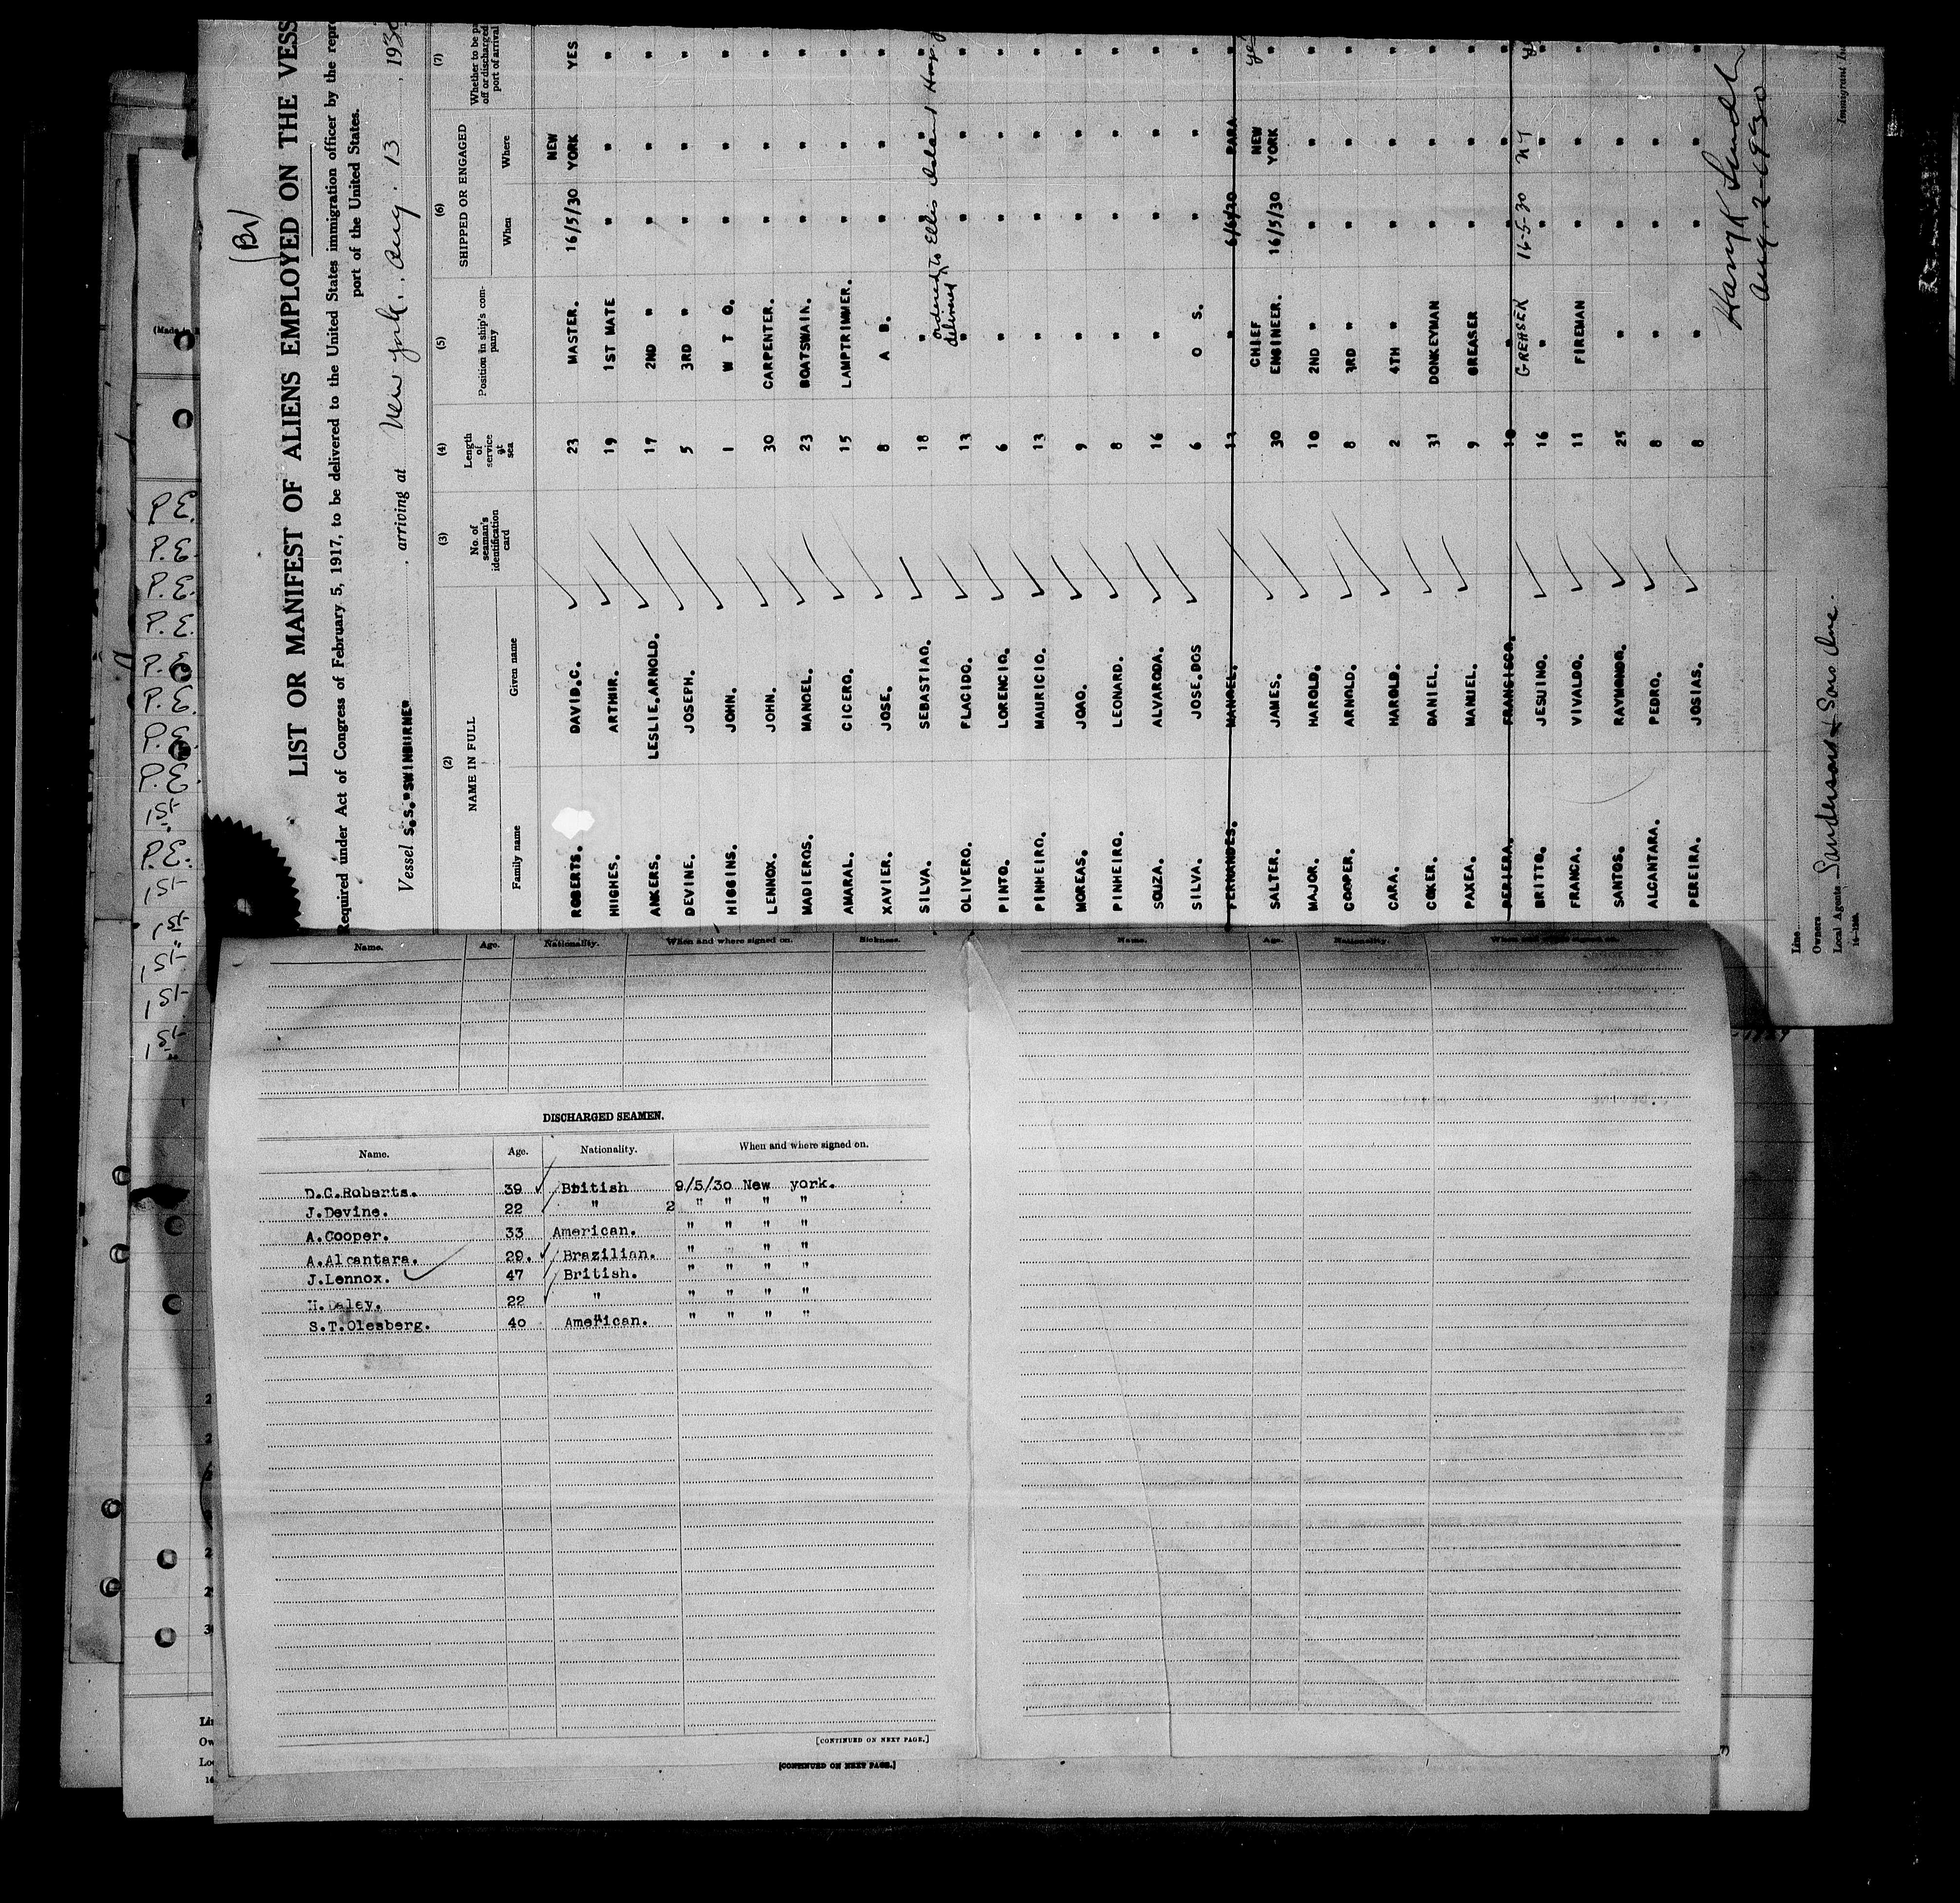 (Br)
LIST OR MANIFEST OF ALIENS EMPLOYED ON THE VESS
Required under Act of Congress of February 5, 1917, to be delivered to the United States immigration officer by the repr
port of the United States.
Vessel S.S. "SWINBURNE" arriving at New York, Aug. 13, 193
(2) (3) (4) (5) (6) (7)
NAME IN FULL No. of seaman's identification card Length of service at sea Position in ship's company SHIPPED OR ENGAGED Whether to be pa off or discharged port of arrival
Family name Given name When Where
ROBERTS. DAVID.C. 23 MASTER. 16/5/30 NEW YORK YES
HUGHES. ARTHUR. 19 1ST MATE " " "
ANKERS. LESLIE,ARNOLD. 17 2ND " " " "
DEVINE. JOSEPH. 5 3RD " " " "
HIGGINS. JOHN. 1 W T O. " " "
LENNOX. JOHN. 30 CARPENTER. " " "
MADIEROS. MANOEL. 23 BOATSWAIN. " " "
AMARAL. CICERO. 15 LAMPTRIMMER. " " "
XAVIER. JOSE. 8 A B. " " "
SILVA. SEBASTIAO. 18 " " " "
ordered delivered to Ellis Island Hosp.
OLIVERO. PLACIDO. 13 " " " "
PINTO. LORENCIO. 6 " " " "
PINHEIRO. MAURICIO. 13 " " " "
MOREAS. JOAO. 9 " " " "
PINHEIRO. LEONARD. 8 " " " "
SOUZA. ALVARODA. 16 " " " "
SILVA. JOSE.DOS 6 O S. " " "
FERNANDES. MANOEL. 13 " 6/6/30 PARA "
SALTER. JAMES. 30 CHIEF ENGINEER. 16/5/30 NEW YORK yes "
MAJOR. HAROLD. 10 2ND " " " "
COOPER. ARNOLD. 8 3RD " " " "
CARA. HAROLD. 2 4TH " " " "
COKER. DANIEL. 31 DONKEYMAN " " "
PAXEA. MANUEL. 9 GREASER " " "
PERIERA. FRANCISCO. 10 " " " "
BRITTO. JESUINO. 16 GREASER " 16-5-30 " NY " "
FRANCA. VIVALDO. 11 FIREMAN " " "
SANTOS. RAYMONDO. 25 " " " "
ALCANTARA. PEDRO. 8 " " " "
PEREIRA. JOSIAS. 8 " " " "
Line
Owners
Local Agents Sanderson & Son Inc.
Immigrant In
P.E.
P.E.
P.E.
P.E.
P.E.
P.E.
P.E.
P.E.
1st
P.E.
1st
1st
1st
1st
1st
Name. Age. Nationality. When and where signed on. Sickness.
Name. Age. Nationality. When and where signed on.
DISCHARGED SEAMEN.
Name. Age. Nationality. When and where signed on.
D.C.Roberts. 39 British 9/5/30 New york.
J.Devine. 22 " 2 " " " "
A.Cooper. 33 American. " " " "
A.Alcantara. 29. Brazilian. " " " "
J.Lennox. 47 British. " " " "
H.Daley. 22 " " " " "
S.T.Olesberg. 40 American. " " " "
[CONTINUED ON NEXT PAGE.]
[CONTINUED ON NEXT PAGE.]